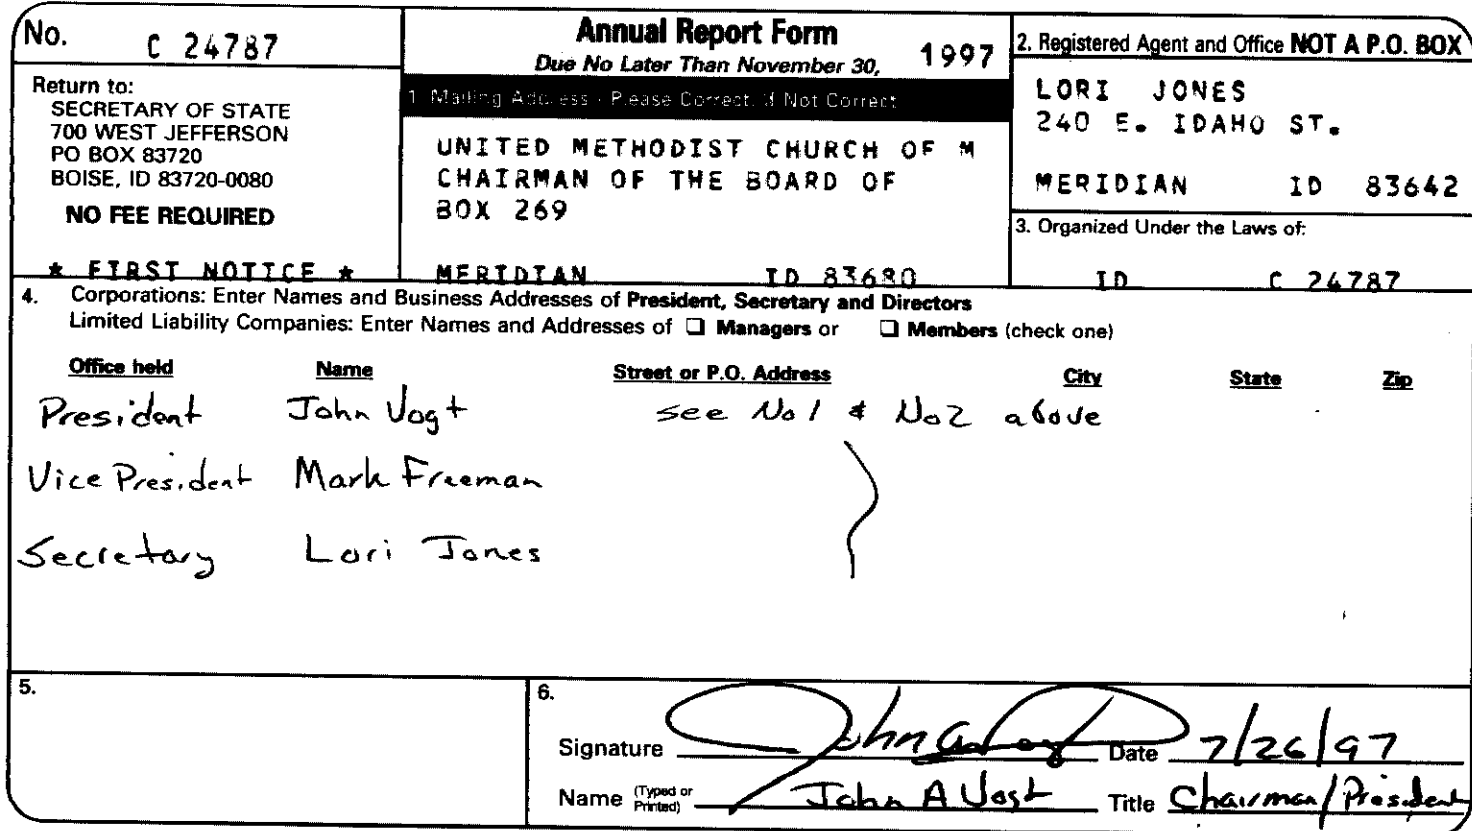 No. C 24787
Return to:
SECRETARY OF STATE
700 WEST JEFFERSON
PO BOX 83720
BOISE, ID 83720-0080
NO FEE REQUIRED
* FIRST NOTICE *
Annual Report Form
Due No Later Than November 30, 1997
1. Mailing Address - Please Correct, If Not Correct
UNITED METHODIST CHURCH OF M
CHAIRMAN OF THE BOARD OF
BOX 269
MERIDIAN ID 83680
2. Registered Agent and Office NOT A P.O. BOX
LORI JONES
240 E. IDAHO ST.
MERIDIAN ID 83642
3. Organized Under the Laws of:
ID C 24787
4. Corporations: Enter Names and Business Addresses of President, Secretary and Directors
Limited Liability Companies: Enter Names and Addresses of ❑ Managers or ❑ Members (check one)
Office held Name Street or P.O. Address City State Zip
President John Vogt see No 1 & No 2 above
Vice President Mark Freeman
Secretary Lori Jones
5.
6.
Signature John A Vogt Date 7/26/97
Name (Typed or Printed) John A Vogt Title Chairman/President